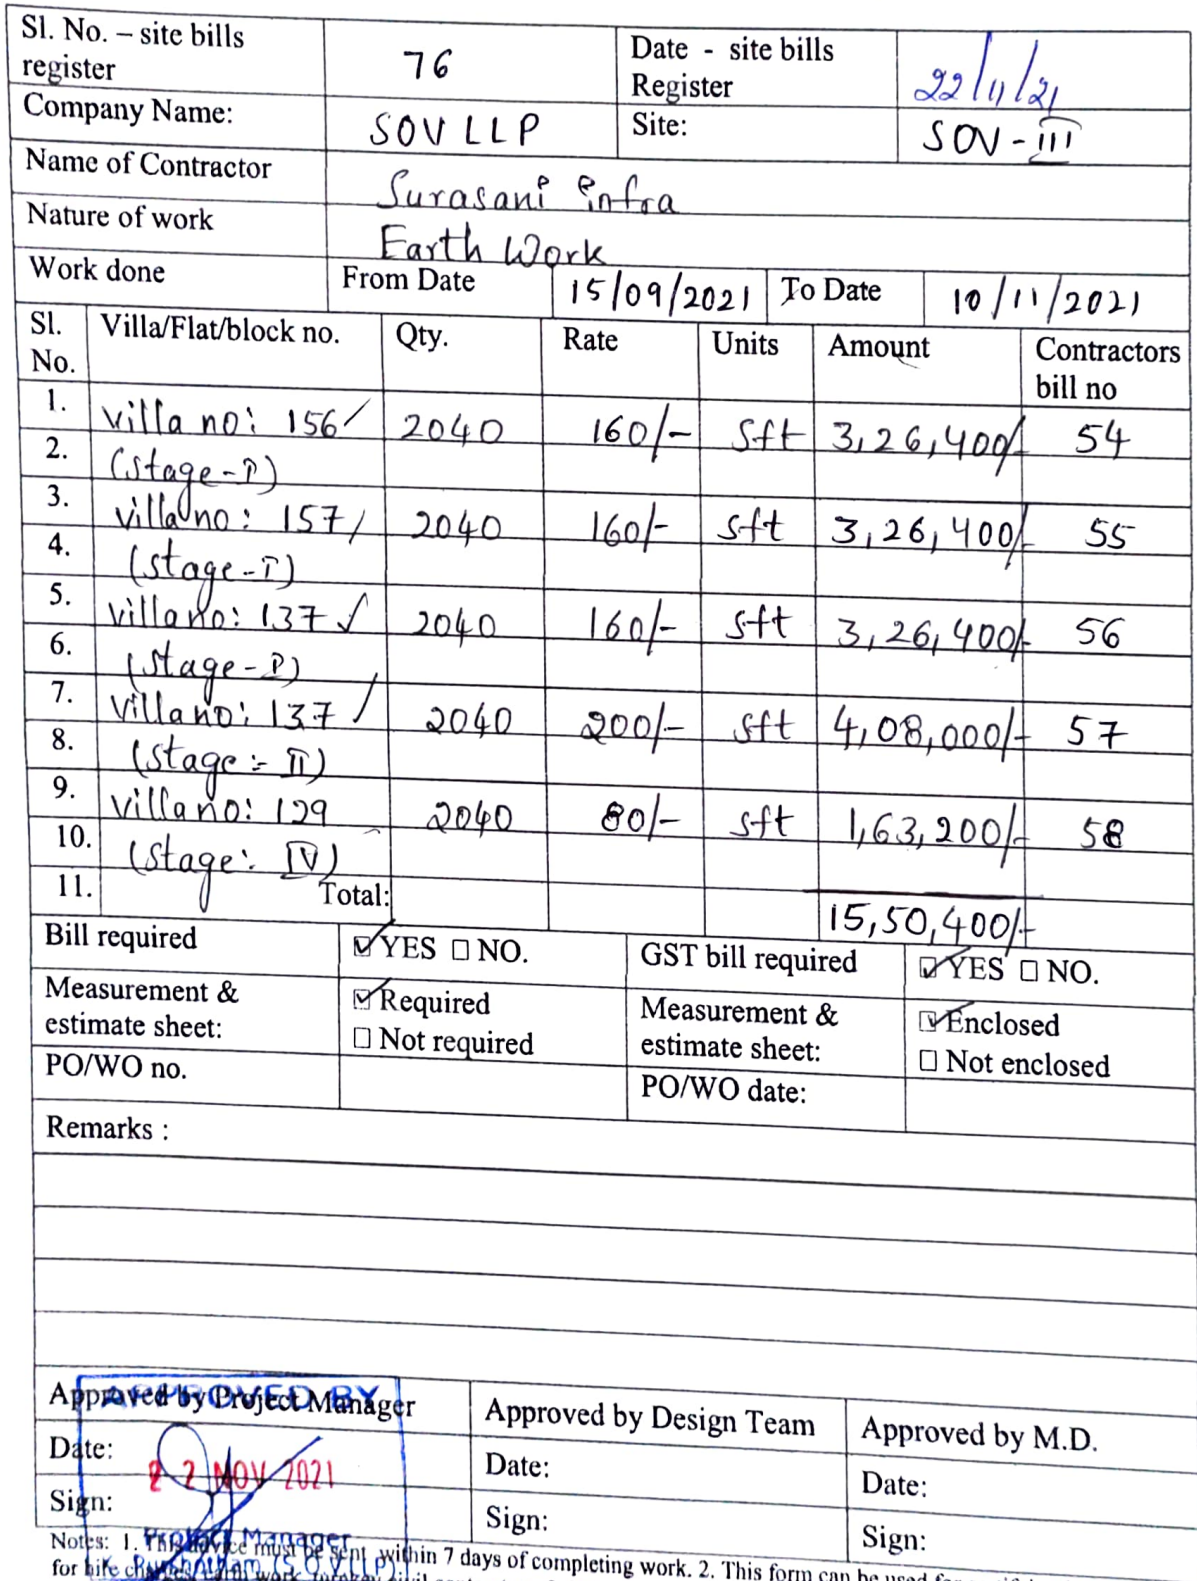 Sl. No. – site bills register 76 Date - site bills Register 22/11/21
Company Name: SOV LLP Site: SOV-III
Name of Contractor Surasani infra
Nature of work Earth Work
Work done From Date 15/09/2021 To Date 10/11/2021
Sl. No. Villa/Flat/block no. Qty. Rate Units Amount Contractors bill no
1. villa no: 156 2040 160/- sft 3,26,400/- 54
2. (stage-I)
3. villa no: 157 2040 160/- sft 3,26,400/- 55
4. (stage-I)
5. villa no: 137 ✓ 2040 160/- sft 3,26,400/- 56
6. (stage-I)
7. villa no: 137 2040 200/- sft 4,08,000/- 57
8. (stage:- II)
9. villa no: 129 2040 80/- sft 1,63,200/- 58
10. (stage: IV)
11. Total: 15,50,400/-
Bill required ☑ YES ☐ NO. GST bill required ☑ YES ☐ NO.
Measurement & estimate sheet: ☑ Required ☐ Not required Measurement & estimate sheet: ☑ Enclosed ☐ Not enclosed
PO/WO no. PO/WO date:
Remarks :
Approved by Project Manager Approved by Design Team Approved by M.D.
APPROVED BY
Date: 22 NOV 2021 Date: Date:
Sign: Sign: Sign:
Project Manager
Notes: 1. This advice must be sent within 7 days of completing work. 2. This form can be used for
(S.O.V.LLP)
for hire charges